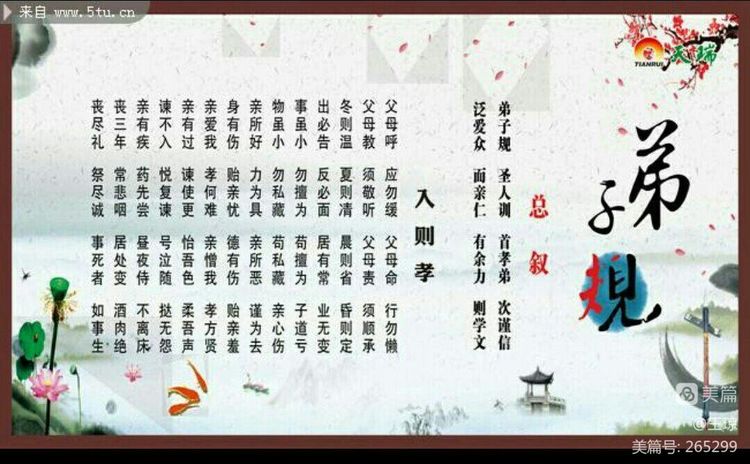 来自 www.5tu.cn
TIANRUI 天瑞
弟子規
总叙
弟子规 圣人训 首孝弟 次谨信
泛爱众 而亲仁 有余力 则学文
入则孝
父母呼 应勿缓 父母命 行勿懒
父母教 须敬听 父母责 须顺承
冬则温 夏则清 晨则省 昏则定
出必告 反必面 居有常 业无变
事虽小 勿擅为 苟擅为 子道亏
物虽小 勿私藏 苟私藏 亲心伤
亲所好 力为具 亲所恶 谨为去
身有伤 贻亲忧 德有伤 贻亲羞
亲爱我 孝何难 亲憎我 孝方贤
亲有过 谏使更 怡吾色 柔吾声
谏不入 悦复谏 号泣随 挞无怨
亲有疾 药先尝 昼夜侍 不离床
丧三年 常悲咽 居处变 酒肉绝
丧尽礼 祭尽诚 事死者 如事生
美篇
美篇号: 265299